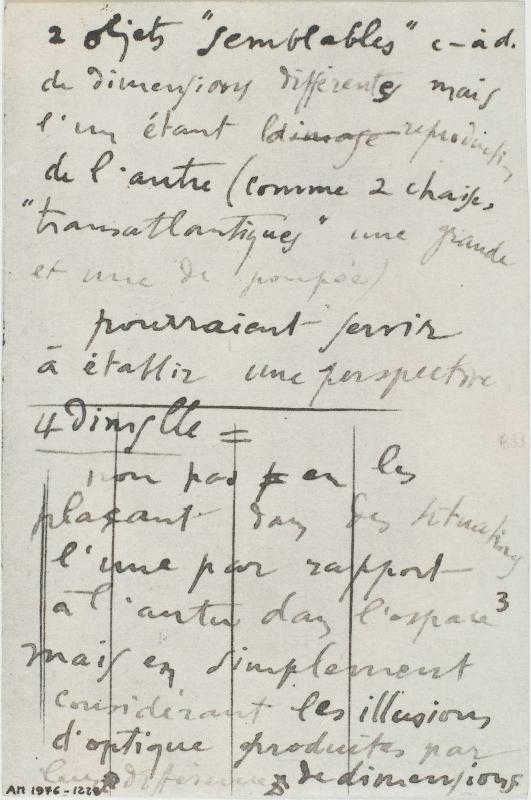 2 objets "semblables" c-à d.
de dimensions différentes mais
l'un étant l'image reproduction
de l'autre (comme 2 chaises
"transatlantiques" une grande
et une de poupée)
pourraient servir
à établir une perspective
4 dimslle =
non pas en les
plaçant dans des situations
l'une par rapport
à l'autre dans l'espace 3
mais en simplement
considérant les illusions
d'optique produites par
leurs différence de dimensions
AM 1976-1228